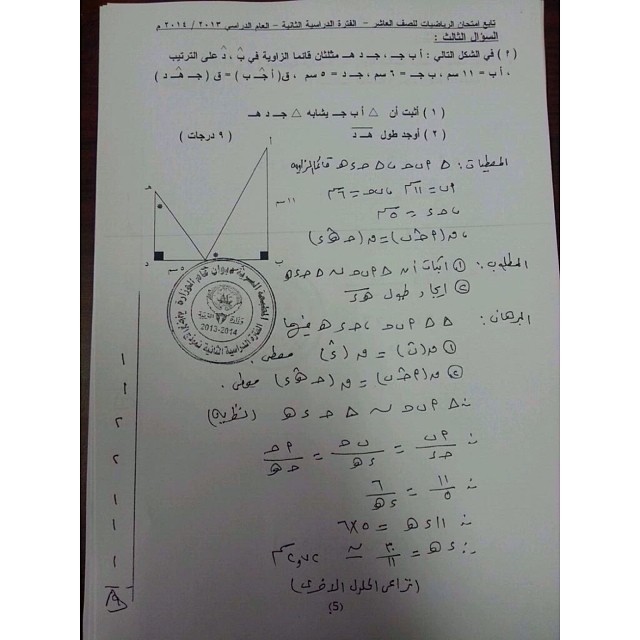 تابع امتحان الرياضيات للصف العاشر - الفترة الدراسية الثانية - العام الدراسي ٢٠١٣ / ٢٠١٤ م
السؤال الثالث :
( ٢ ) في الشكل التالي : أ ب جـ ، جـ د هـ مثلثان قائما الزاوية في بَ ، دَ على الترتيب
، أب = ١١ سم ، ب جـ = ٦ سم ، جـ د = ٥ سم ، ق( أ جـَ ب ) = ق ( جـ هـَ د )
( ١ ) أثبت أن △ أ ب جـ يشابه △ جـ د هـ
( ٢ ) أوجد طول هـ د ( ٩ درجات )
أ
هـ
١١ سم
د ٥ سم ب
المعطيات : △ أ ب حـ ، △ حـ د هـ قائما الزاوية
أ ب = ١١ سم ، ب حـ = ٦ سم
، حـ د = ٥ سم
، ق(أ حـ ب) = ق(حـ هـ د)
المطلوب : ① اثبات أن △ أ ب حـ ~ △ حـ د هـ
② ايجاد طول هـ د
البرهان : △△ أ ب حـ ، حـ د هـ فيهما
① ق(ب) = ق(د) معطى ١
② ق(أ حـ ب) = ق(حـ هـ د) معطى . ١
∴ △ أ ب حـ ~ △ حـ د هـ (نظرية) ٢
∴ أ ب / حـ د = ب حـ / د هـ = أ حـ / حـ هـ ٢
∴ ١١ / ٥ = ٦ / د هـ ١
∴ ١١ د هـ = ٥ × ٦ ١
∴ د هـ = ٣٠ / ١١ ≈ ٢,٧٢ سم ١
٩
(تراعى الحلول الأخرى)
(5)
2013-2014